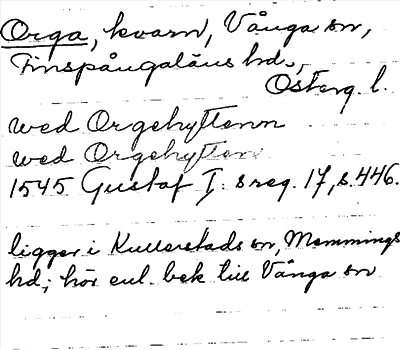 Orga, kvarn, Vånga sn,
Finspångaläns hd.,
Österg. l.
wed Orgehyttenn
wed Orgehytten
1545 Gustaf I. s reg. 17, s. 446.
ligger i Kullerstads sn, Memmings
hd; hör enl. bek till Vånga sn